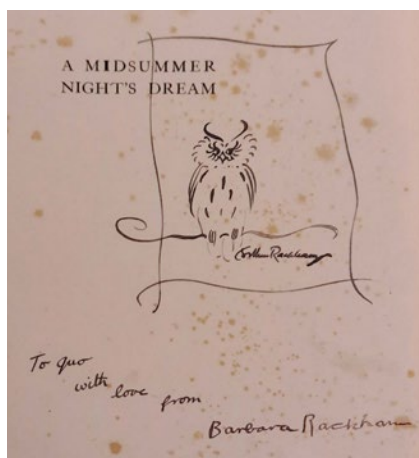 A MIDSUMMER
NIGHT'S DREAM
Arthur Rackham
To Quo
with love from
Barbara Rackham